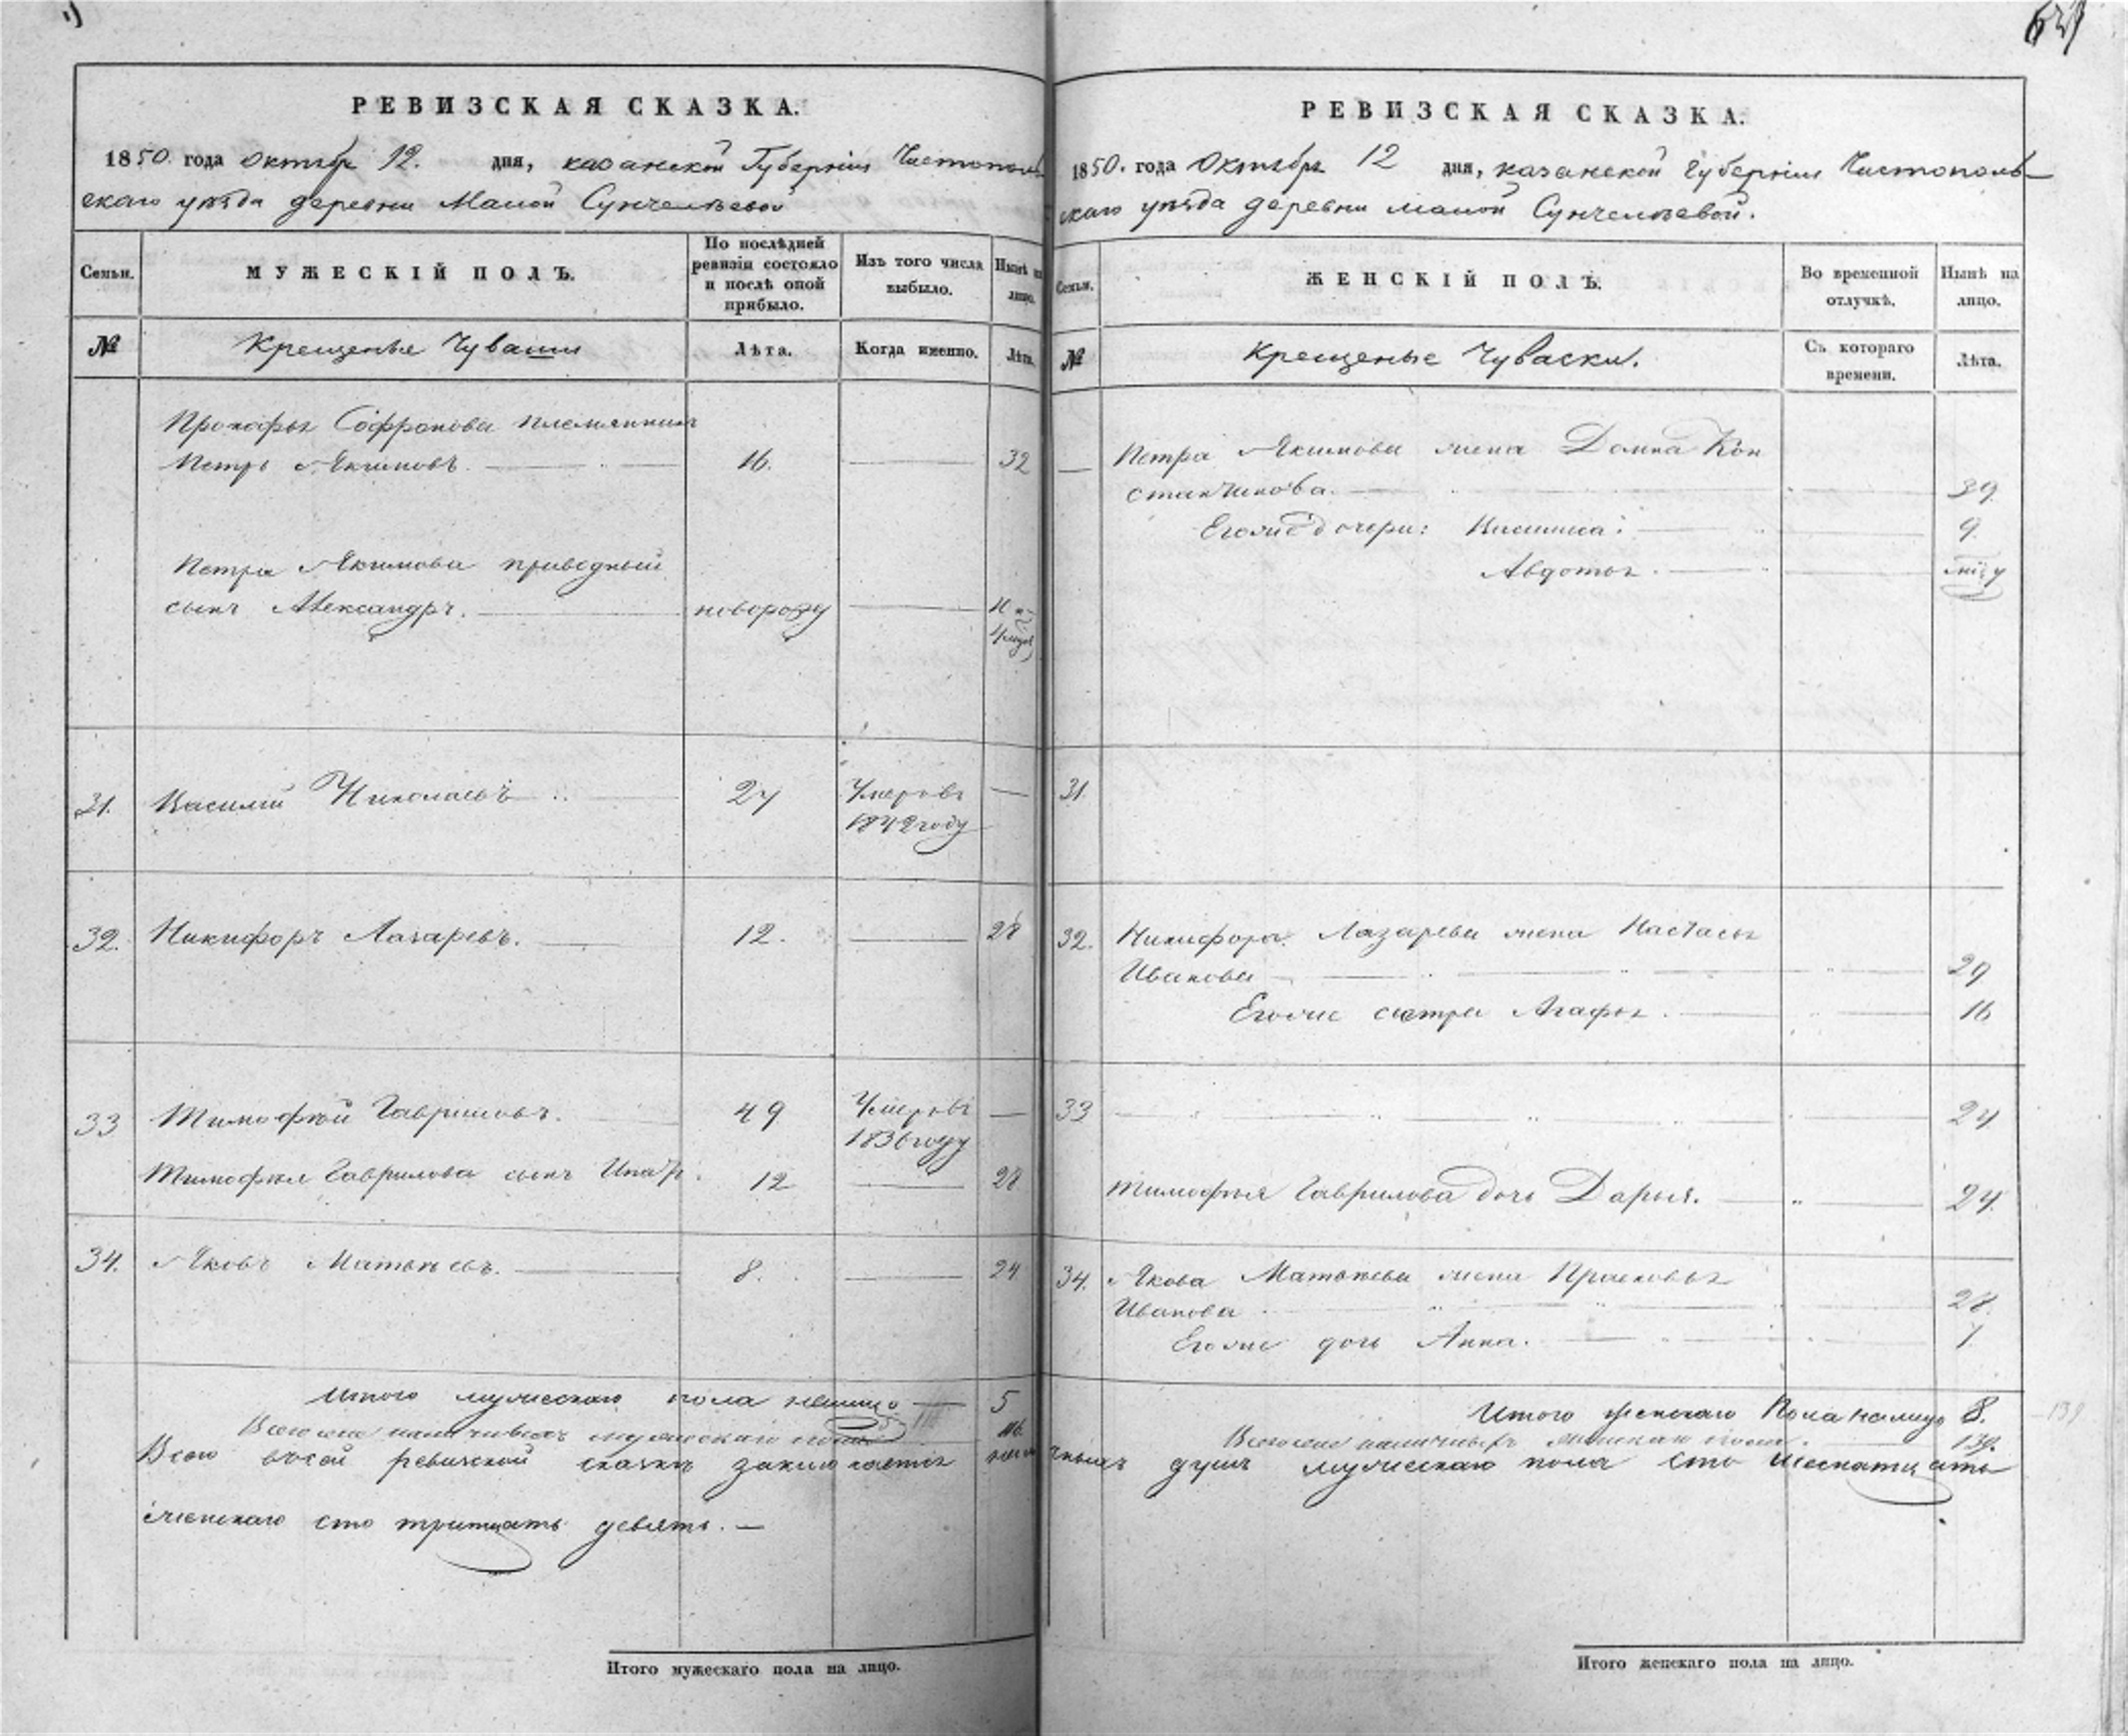 РЕВИЗСКАЯ СКАЗКА.
1850. года октябр 12. дня, казанской Губерніи Чистополь
скаго уѣзда деревни Малой Сунчелѣевой
Семьи.
МУЖЕСКІЙ ПОЛЪ.
По послѣдней
ревизіи состояло
и послѣ оной
прибыло.
Изъ того числа
выбыло.
Нынѣ на
лицо.
№
Крещеные Чуваши
Лѣта.
Когда именно.
Лѣта.
Прокофья Софронова племянник
Петръ Якимовъ. 16. 32
Петра Якимова приводный
сынъ Александръ. новорожу
31. Василій Николаевъ 27 Умеръ въ
1842 году
32. Никифоръ Лазаревъ. 12. 28
33 Тимофѣй Гавриловъ. 49 Умеръ въ
1836 году
Тимофѣя Гаврилова сынъ 12 28
34. Яковъ Матвѣевъ. 8. 24
Итого мужескаго пола налицо 5
Всего же наличныхъ мужескаго пола 116.
Всего въ сей ревизской сказкѣ заключается
женскаго сто тритцать девять.
Итого мужескаго пола на лицо.
РЕВИЗСКАЯ СКАЗКА.
1850. года Октябр 12 дня, казанской Губерніи Чистополь
скаго уѣзда деревни малой Сунчелѣевой.
Семьи.
ЖЕНСКІЙ ПОЛЪ.
Во временной
отлучкѣ.
Нынѣ на
лицо.
№
Крещеные Чуваски.
Съ котораго
времени.
Лѣта.
Петра Якимова жена Домна Кон
стантинова. 39
Егоже дочери: 9.
Авдотья.
31.
32. Никифора Лазарева жена Настасья
Иванова 29
Егоже сестра Агафья. 16
33 24
Тимофѣя Гаврилова дочь Дарья. 24.
34. Якова Матвѣева жена Прасковья
Иванова 28.
Егоже дочь Анна. 1.
Итого женскаго пола налицо 8.
Всего же наличныхъ женскаго пола. 139.
душъ мужескаго пола сто шеснатцать
Итого женскаго пола на лицо.